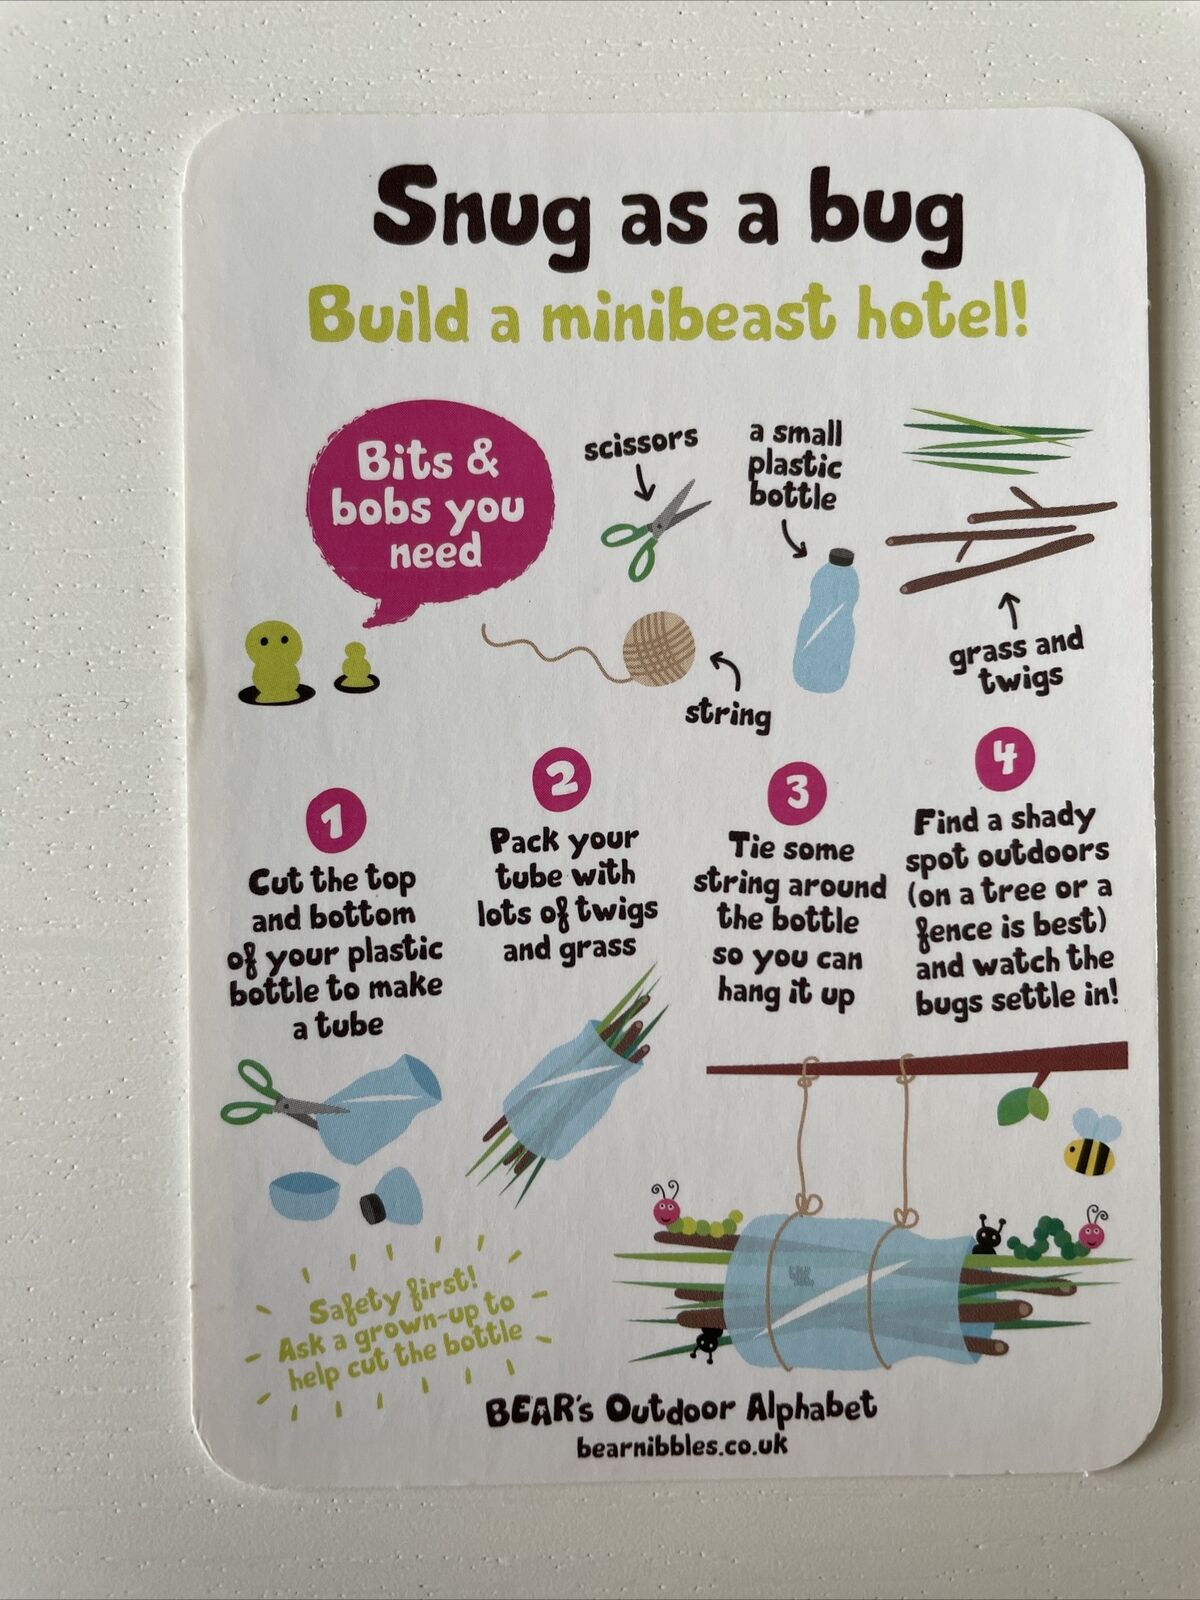 Snug as a bug
Build a minibeast hotel!
Bits &
bobs you
need
scissors
a small
plastic
bottle
string
grass and
twigs
1
Cut the top
and bottom
of your plastic
bottle to make
a tube
2
Pack your
tube with
lots of twigs
and grass
3
Tie some
string around
the bottle
so you can
hang it up
4
Find a shady
spot outdoors
(on a tree or a
fence is best)
and watch the
bugs settle in!
Safety first!
Ask a grown-up to
help cut the bottle
BEAR's Outdoor Alphabet
bearnibbles.co.uk